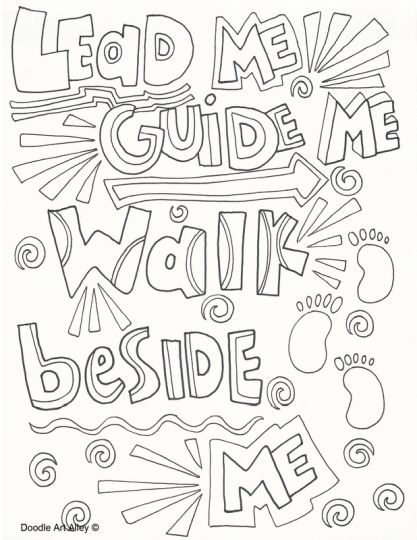 LEaD ME
GUiDE ME
Walk
beSIDE
ME
Doodle Art Alley ©